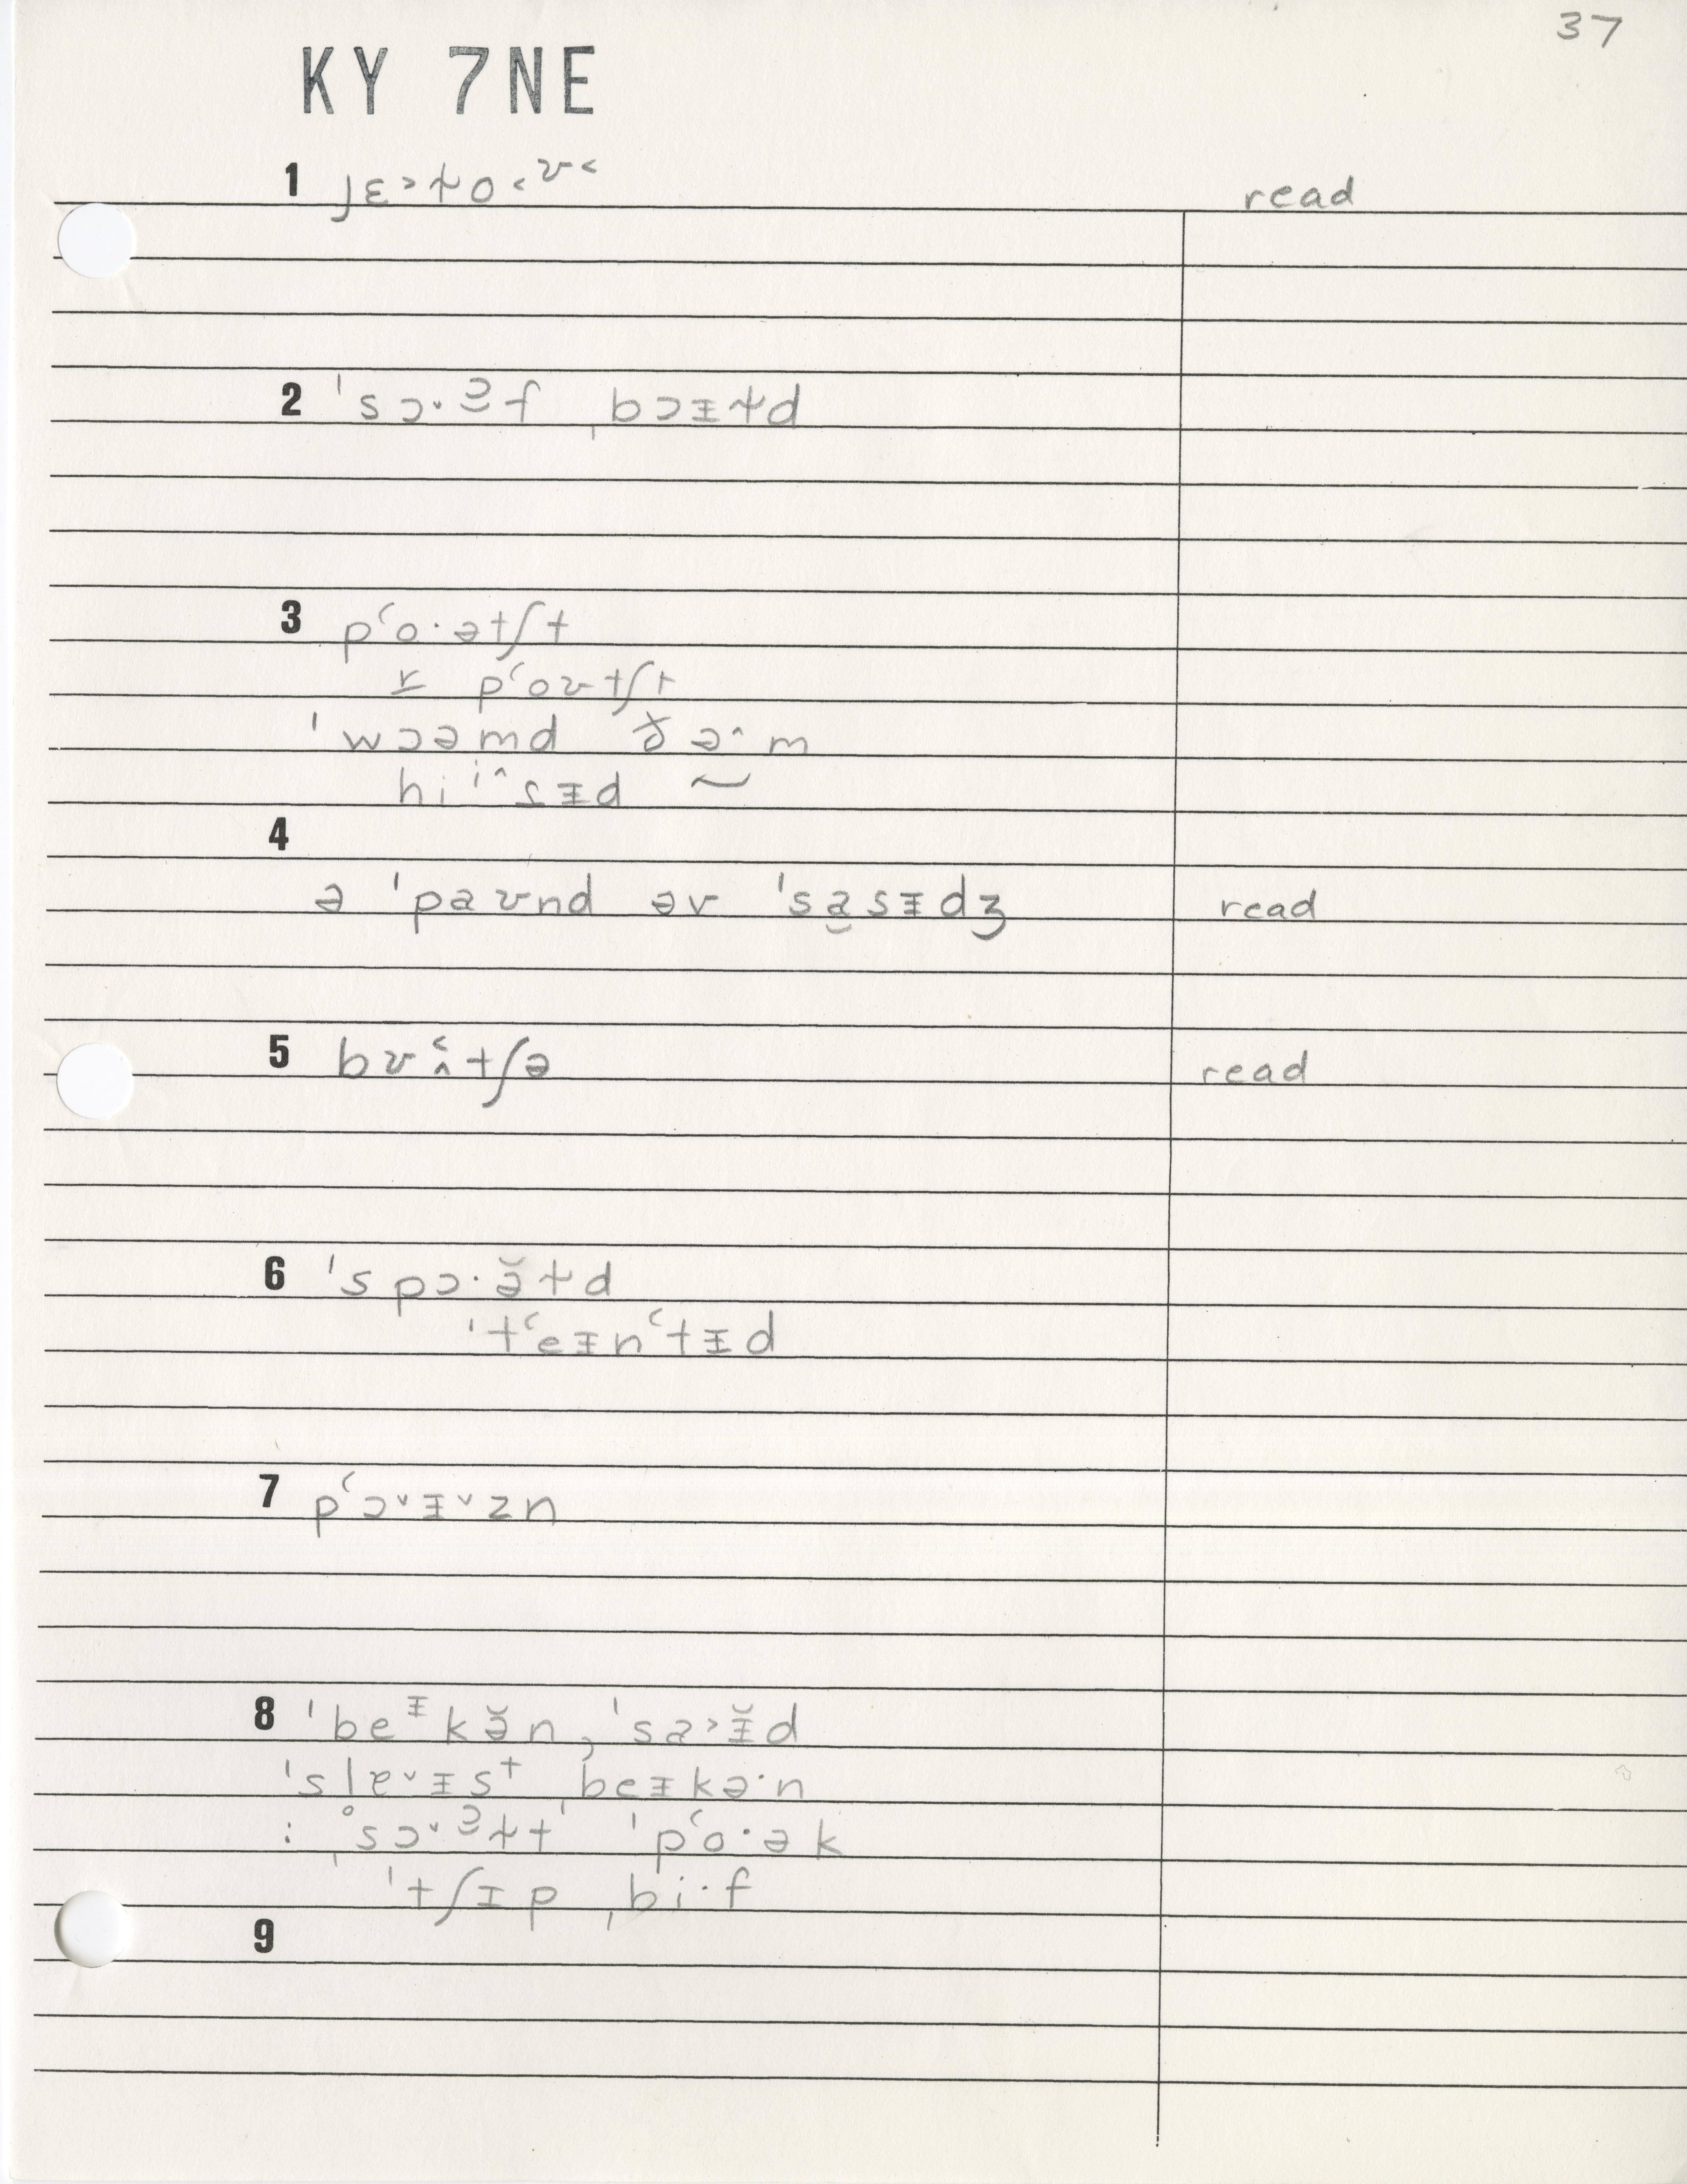 37
KY 7NE
1 jɛ˃ɫo˂ʊ˂ read
2 ˈsɔ·ə̆f ˌbɔᵻɫd
3 pʻo·ətʃt
r pʻoʊtʃt
ˈwɔəmd ðə^m
hiⁱ^ᵻd ~
4
ə ˈpaʊnd əv ˈsa̯sᵻdʒ read
5 bʊ^˂tʃə read
6 ˈspɔ·ə̆ɫd
ˈtʻeᵻnʻtᵻd
7 pʻɔ˅ᵻ˅zn
8 ˈbeᵻkə̆n, ˈsa˃ᵻ̆d
ˈslɐ˅ᵻst ˌbeᵻkə·n
: ˈsɔ˅ə̆ɫt ˈpʻo·ək
ˈtʃɪp ˌbi·f
9